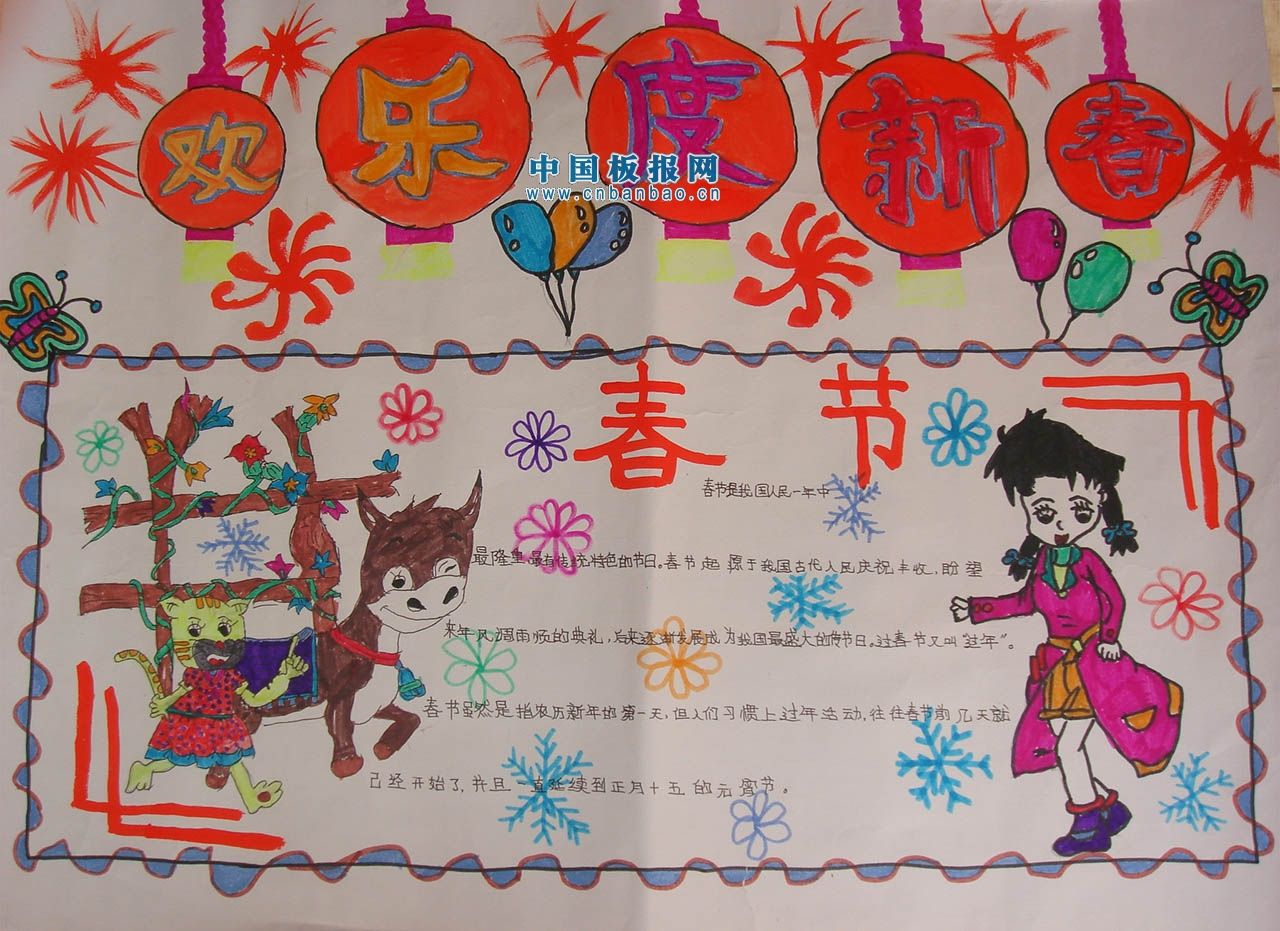 欢乐度新春
中国板报网
www.cnbanbao.cn
春节
春节是我国人民一年中
最隆重、最有传统特色的节日。春节起源于我国古代人民庆祝丰收,盼望
来年风调雨顺的典礼,后来逐渐发展成为我国最盛大的传节日。过春节又叫“过年”。
春节虽然是指农历新年的第一天,但人们习惯上过年活动,往往春节前几天就
已经开始了,并且一直延续到正月十五的元宵节。